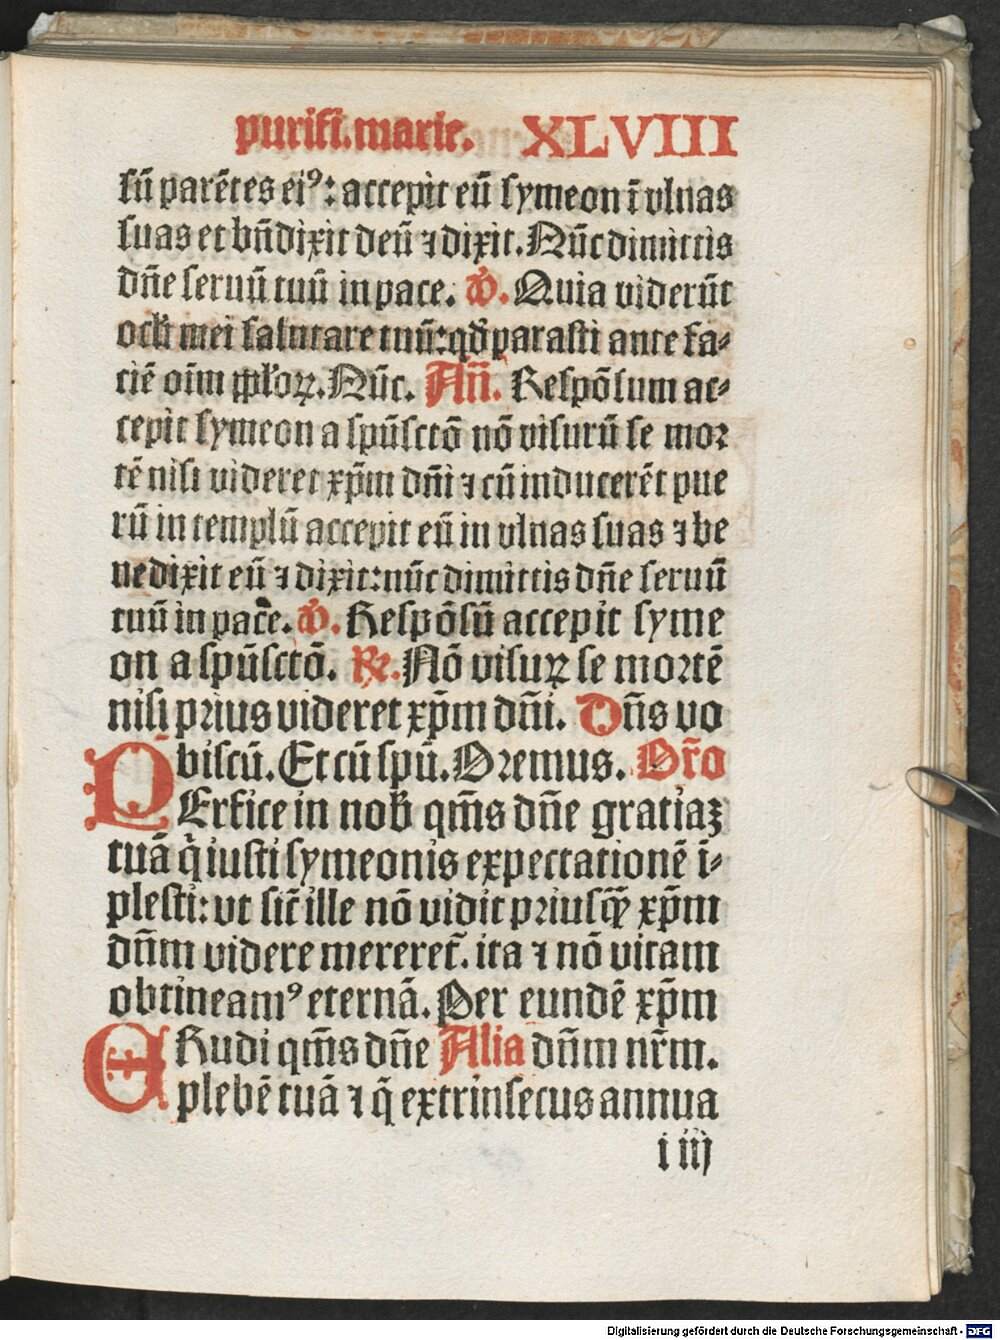 purifi. marie. XLVIII
sū parētes eiꝰ: accepit eū symeon ī vlnas
suas et bn̄dixit deū ⁊ dixit. Nūc dimittis
dn̄e seruū tuū in pace. ꝟ. Quia viderūt
oculi mei salutare tuū: qd̓ parasti ante fa⸗
ciē oīm pp̄loꝝ. Nūc. Añ. Respōsum ac⸗
cepit symeon a spūsctō nō visurū se moꝛ
tē nisi videret xp̄m dn̄i ⁊ cū inducerēt pue
rū in templū accepit eū in vlnas suas ⁊ be
nedixit eū ⁊ dixit: nūc dimittis dn̄e seruū
tuū in pace. ꝟ. Respōsū accepit syme
on a spūsctō. ℞. Nō visuꝝ se moꝛtē
nisi prius videret xp̄m dn̄i. Dn̄s vo
biscū. Et cū spū. Oꝛemus. Or̄o
PErfice in nob̄ qm̄s dn̄e gratiaꝫ
tuā q̄ iusti symeonis expectationē ī⸗
plesti: vt sic̄ ille nō vidit priusꝙ̄ xp̄m
dn̄m videre mereret̄. ita ⁊ nō vitam
obtineamꝰ eternā. Per eundē xp̄m
ERudi qm̄s dn̄e Alia dn̄m nr̄m.
plebē tuā ⁊ q̄ extrinsecus annua
i iij
Digitalisierung gefördert durch die Deutsche Forschungsgemeinschaft - DFG